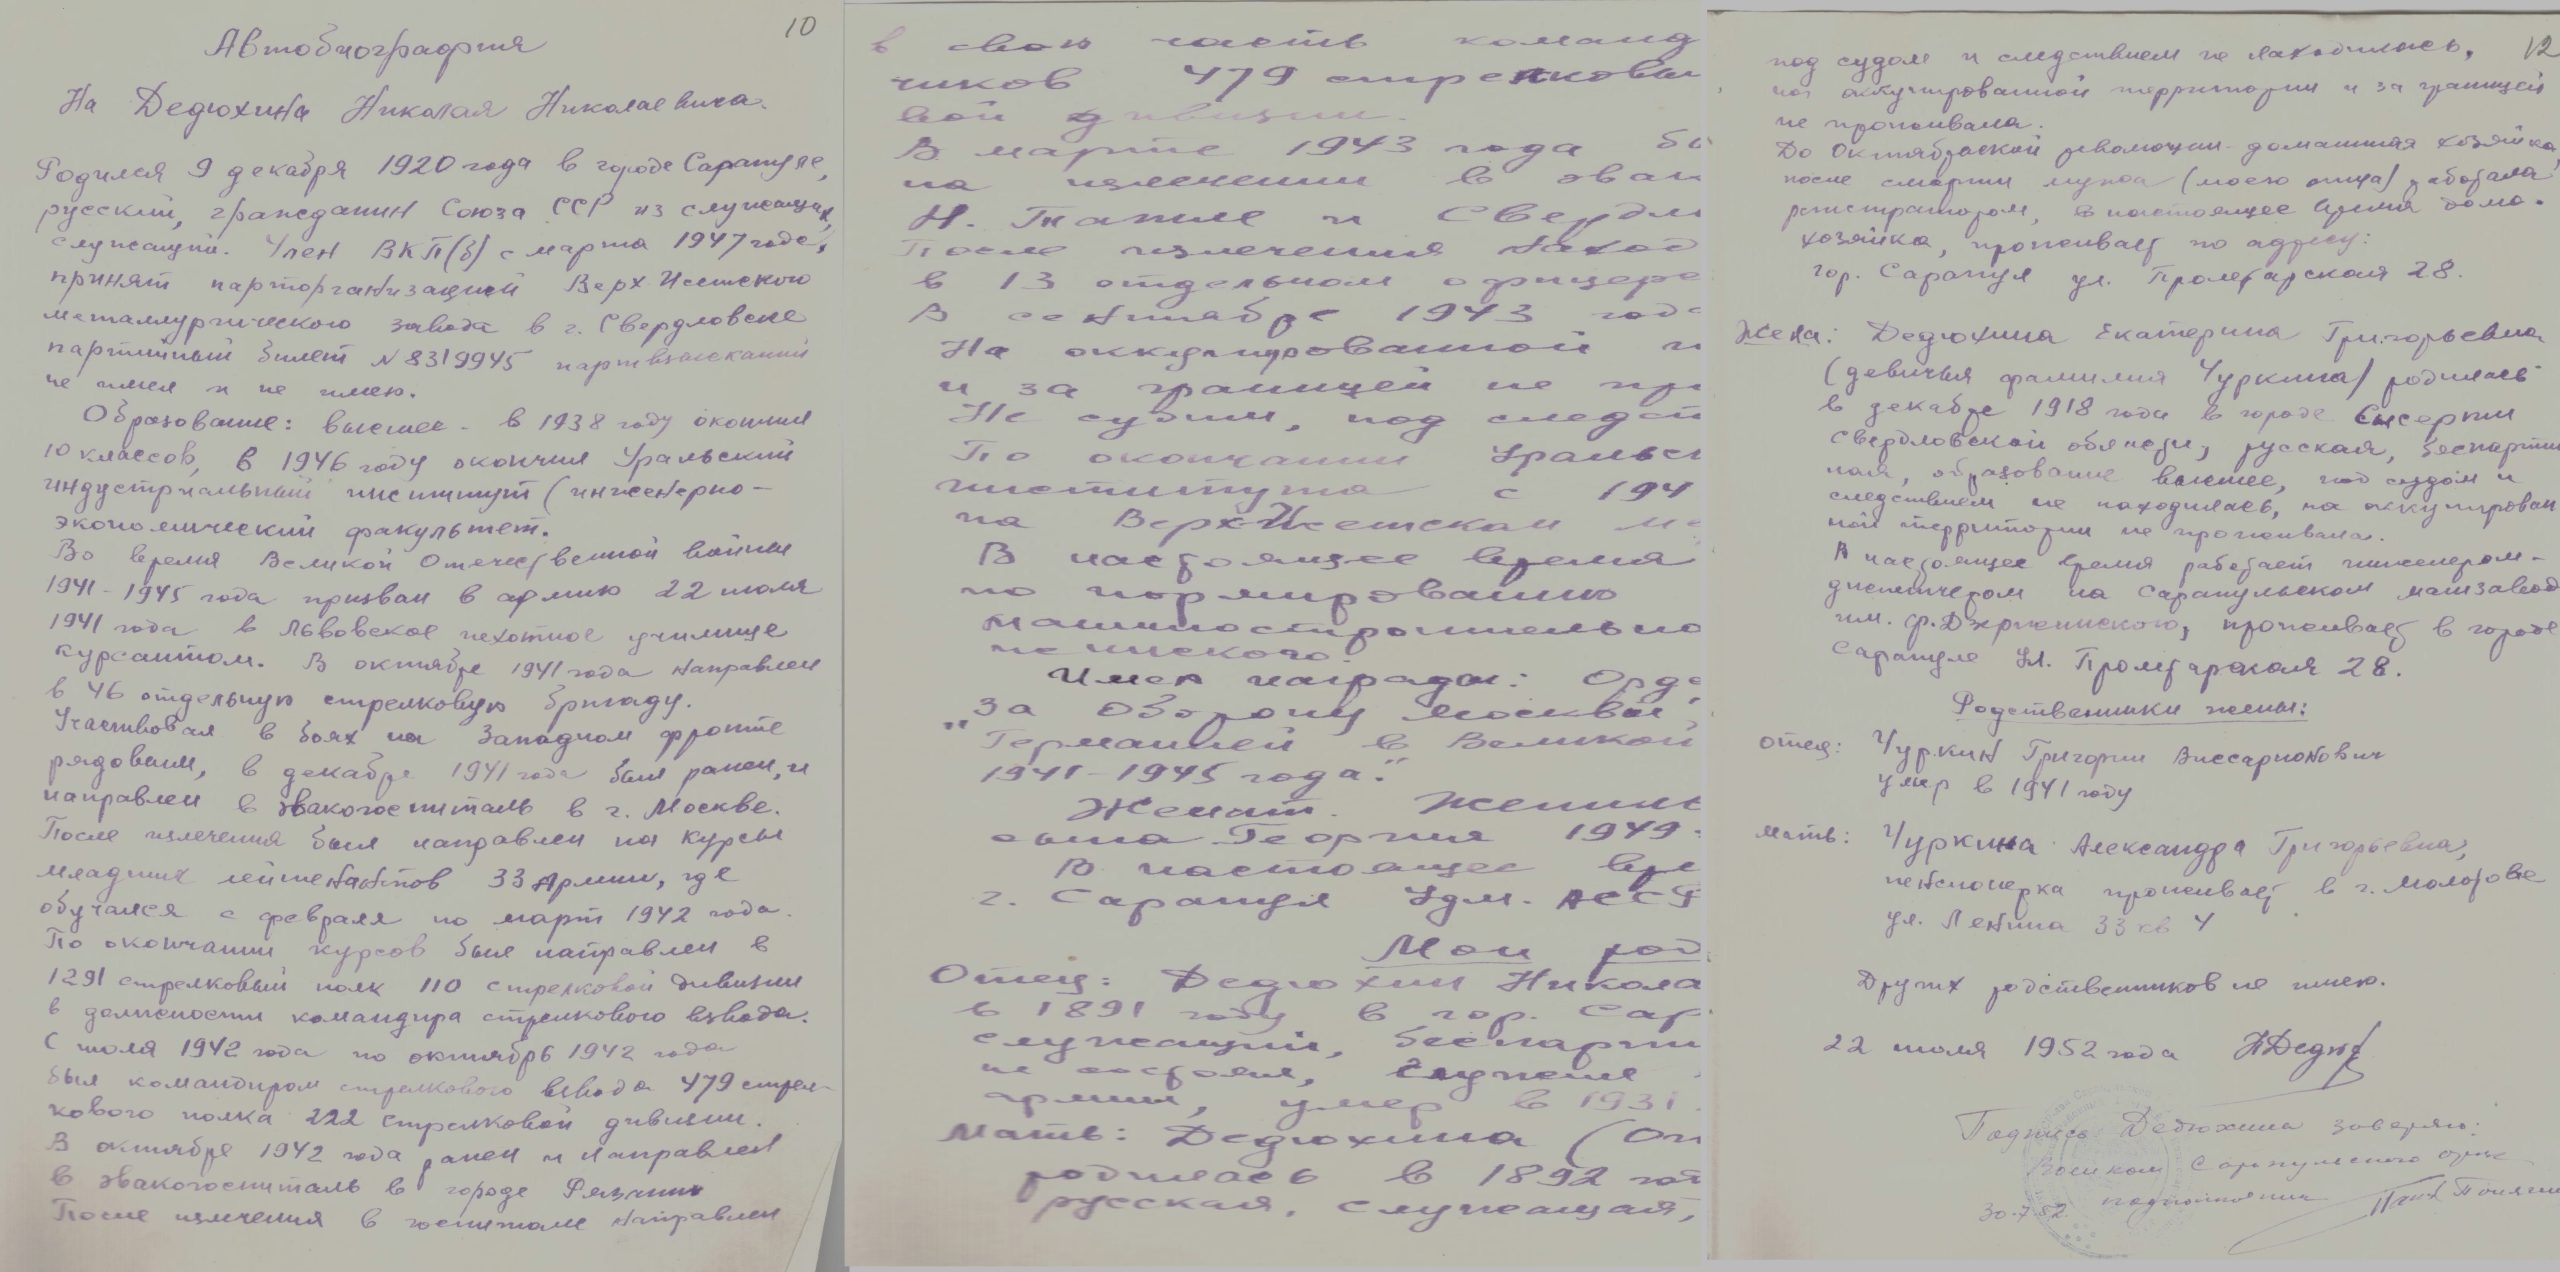 10
Автобиография
На Дедюхина Николая Николаевича.
Родился 9 декабря 1920 года в городе Сарапуле,
русский, гражданин Союза ССР из служащих,
служащий. Член ВКП(б) с марта 1947 года,
принят парторганизацией Верх Исетского
металлургического завода в г. Свердловске
партийный билет N 8319945 партвзысканий
не имел и не имею.
Образование: высшее - в 1938 году окончил
10 классов, в 1946 году окончил Уральский
индустриальный институт (инженерно-
экономический факультет.
Во время Великой Отечественной войны
1941-1945 года призван в армию 22 июля
1941 года в Львовское пехотное училище
курсантом. В октябре 1941 года направлен
в 46 отдельную стрелковую бригаду.
Участвовал в боях на Западном фронте
рядовым, в декабре 1941 года был ранен, и
направлен в эвакогоспиталь в г. Москве.
После излечения был направлен на курсы
младших лейтенантов 33 Армии, где
обучался с февраля по март 1942 года.
По окончании курсов был направлен в
1291 стрелковый полк 110 стрелковой дивизии
в должности командира стрелкового взвода.
С июля 1942 года по октябрь 1942 года
был командиром стрелкового взвода 479 стрел-
кового полка 222 стрелковой дивизии.
В октябре 1942 года ранен и направлен
в эвакогоспиталь в городе Рязани
После излечения в госпитале направлен
в свою часть команд
чиков 479 стрелковы
вой дивизии.
В марте 1943 года бы
на излечении в эвак
Н. Тагиле и Свердл
После излечения наход
в 13 отдельном офицерс
В сентябре 1943 года
На оккупированной т
и за границей не пр
Не судим, под следст
По окончании Уральск
института с 194
на Верх-Исетском ме
В настоящее время
по нормированию
машиностроительно
жинского.
Имею награды: Орде
"За Оборону Москвы",
Германией в Великой
1941-1945 года."
Женат. Женил
сына Георгия 1949
В настоящее вре
г. Сарапул Удм. АССР
Мои род
Отец: Дедюхин Никола
в 1891 году в гор. Сар
служащий, беспарти
не состоял, служил
армии, умер в 1931
Мать: Дедюхина (
родилась в 1892 го
русская, служащая,
12
под судом и следствием не находилась,
на оккупированной территории и за границей
не проживала.
До Октябрьской революции - домашняя хозяйка,
после смерти мужа (моего отца) работала
регистратором, в настоящее время домо-
хозяйка, проживает по адресу:
гор. Сарапул ул. Пролетарская 28.
Жена: Дедюхина Екатерина Григорьевна
(девичья фамилия Чуркина) родилась
в декабре 1918 года в городе Сысерти
Свердловской области, русская, беспартий
ная, образование высшее, под судом и
следствием не находилась, на оккупирован
ной территории не проживала.
В настоящее время работает инженером-
диспетчером на Сарапульском машзаводе
им. Ф. Дзержинского, проживает в городе
Сарапуле ул. Пролетарская 28.
Родственники жены:
отец: Чуркин Григорий Виссарионович
умер в 1941 году
мать: Чуркина Александра Григорьевна,
пенсионерка проживает в г. Молотове
ул. Ленина 33 кв 4
Других родственников не имею.
22 июля 1952 года НДедюх
Подпись Дедюхина заверяю:
Военком Сарапульского
подполковник
30.7.52